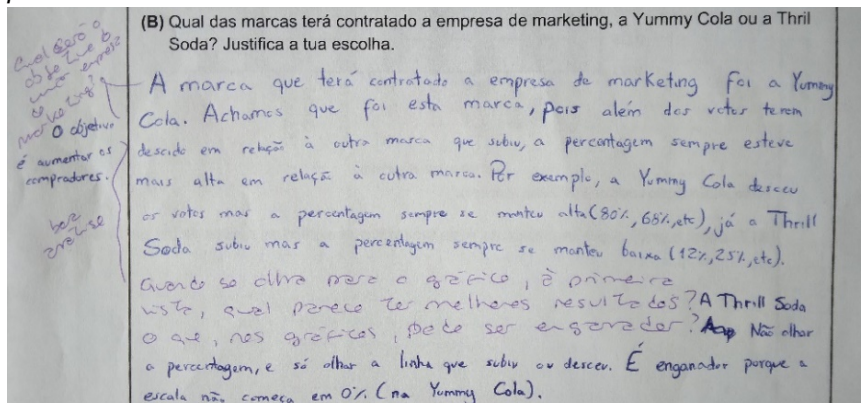 (B) Qual das marcas terá contratado a empresa de marketing, a Yummy Cola ou a Thril
Soda? Justifica a tua escolha.
Qual será o
objetivo
empresa
de
marketing?
O objetivo
é aumentar os
compradores.
boa
análise
A marca que terá contratado a empresa de marketing foi a Yummy
Cola. Achamos que foi esta marca, pois além dos votos terem
descido em relação à outra marca que subiu, a percentagem sempre esteve
mais alta em relação à outra marca. Por exemplo, a Yummy Cola desceu
os votos mas a percentagem sempre se manteu alta (80%, 68%, etc), já a Thrill
Soda subiu mas a percentagem sempre se manteu baixa (12%, 25%, etc).
Quando se olha para o gráfico, à primeira
vista, qual parece ter melhores resultados? A Thrill Soda
O que, nos gráficos, pode ser enganador? Não olhar
a percentagem, e só olhar a linha que subiu ou desceu. É enganador porque a
escala não começa em 0% (na Yummy Cola).